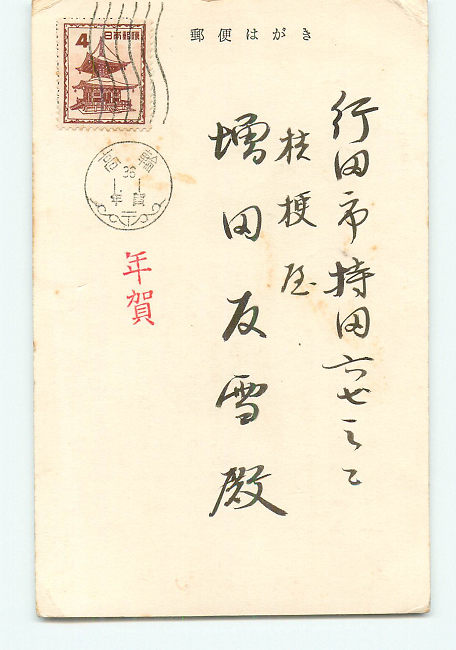 郵便はがき
4
日本郵便
高輪
36
1 1
年賀
年賀
行田市持田六七三ノ二
桔梗屋
増田友雪殿